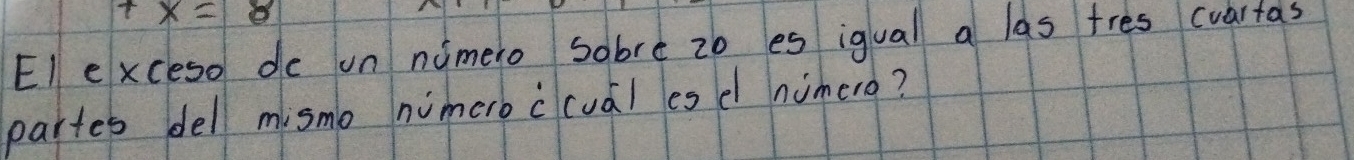 + x = 8
El exceso de un número sobre 20 es igual a las tres cuartas
partes del mismo número ¿cuál es el número?